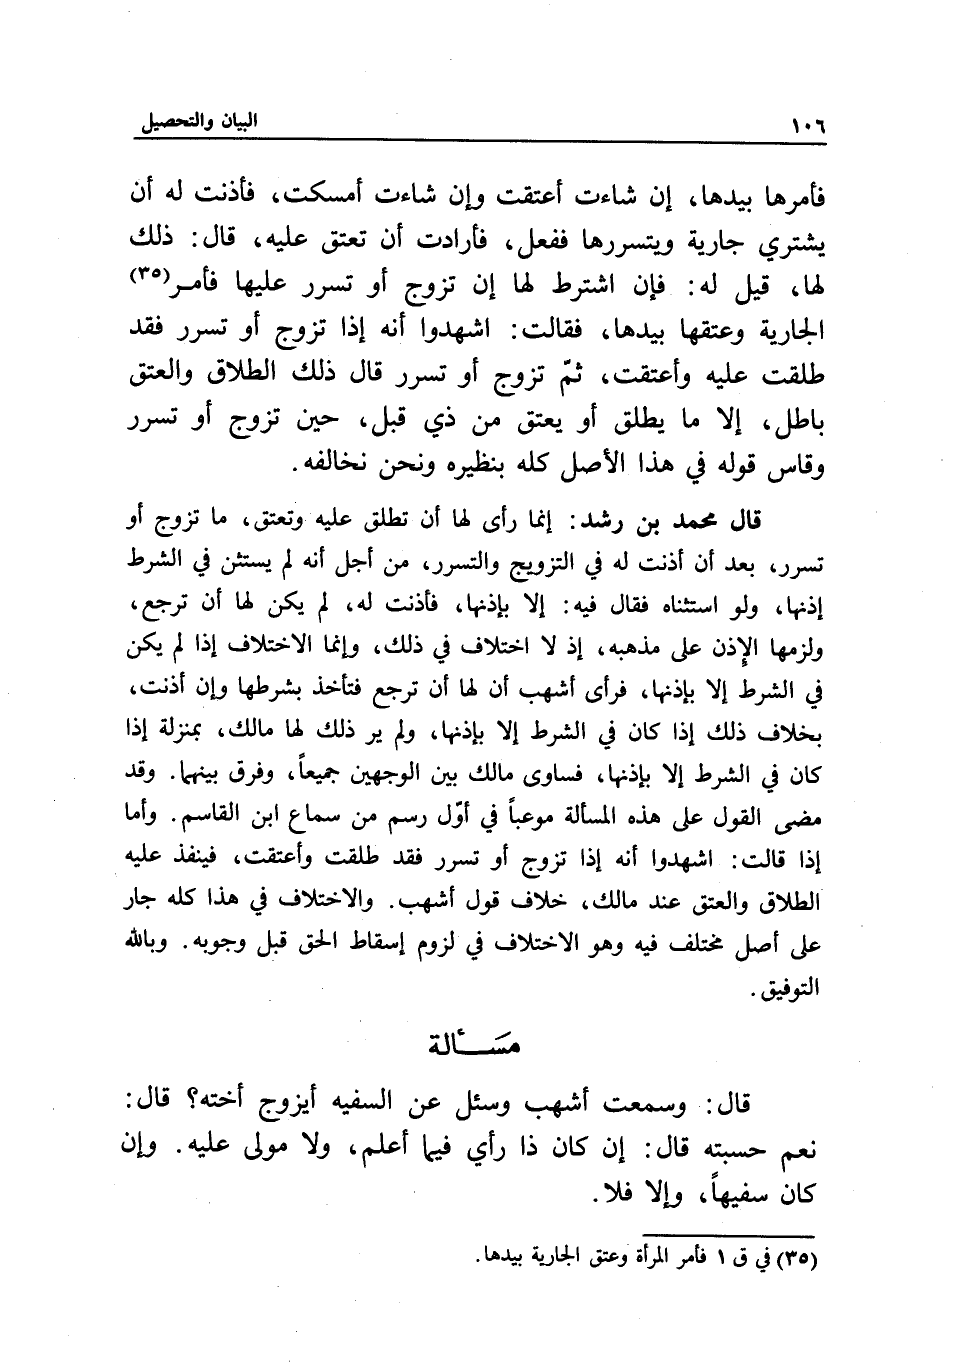 ١٠٦ البيان والتحصيل
فأمرها بيدها، إن شاءت أعتقت وإن شاءت أمسكت، فأذنت له أن
يشتري جارية ويتسررها ففعل، فأرادت أن تعتق عليه، قال: ذلك
لها، قيل له: فإن اشترط لها إن تزوج أو تسرر عليها فأمر(٣٥)
الجارية وعتقها بيدها، فقالت: اشهدوا أنه إذا تزوج أو تسرر فقد
طلقت عليه وأعتقت، ثمّ تزوج أو تسرر قال ذلك الطلاق والعتق
باطل، إلا ما يطلق أو يعتق من ذي قبل، حين تزوج أو تسرر
وقاس قوله في هذا الأصل كله بنظيره ونحن نخالفه.
قال محمد بن رشد: إنما رأى لها أن تطلق عليه وتعتق، ما تزوج أو
تسرر، بعد أن أذنت له في التزويج والتسرر، من أجل أنه لم يستثن في الشرط
إذنها، ولو استثناه فقال فيه: إلا بإذنها، فأذنت له، لم يكن لها أن ترجع،
ولزمها الإذن على مذهبه، إذ لا اختلاف في ذلك، وإنما الاختلاف إذا لم يكن
في الشرط إلا بإذنها، فرأى أشهب أن لها أن ترجع فتأخذ بشرطها وإن أذنت،
بخلاف ذلك إذا كان في الشرط إلا بإذنها، ولم ير ذلك لها مالك، بمنزلة إذا
كان في الشرط إلا بإذنها، فساوى مالك بين الوجهين جميعاً، وفرق بينهما. وقد
مضى القول على هذه المسألة موعباً في أوّل رسم من سماع ابن القاسم. وأما
إذا قالت: اشهدوا أنه إذا تزوج أو تسرر فقد طلقت وأعتقت، فينفذ عليه
الطلاق والعتق عند مالك، خلاف قول أشهب. والاختلاف في هذا كله جار
على أصل مختلف فيه وهو الاختلاف في لزوم إسقاط الحق قبل وجوبه. وبالله
التوفيق.
مَسـألة
قال: وسمعت أشهب وسئل عن السفيه أيزوج أخته؟ قال:
نعم حسبته قال: إن كان ذا رأي فيما أعلم، ولا مولى عليه. وإن
كان سفيهاً، وإلا فلا.
(٣٥) في ق ١ فأمر المرأة وعتق الجارية بيدها.